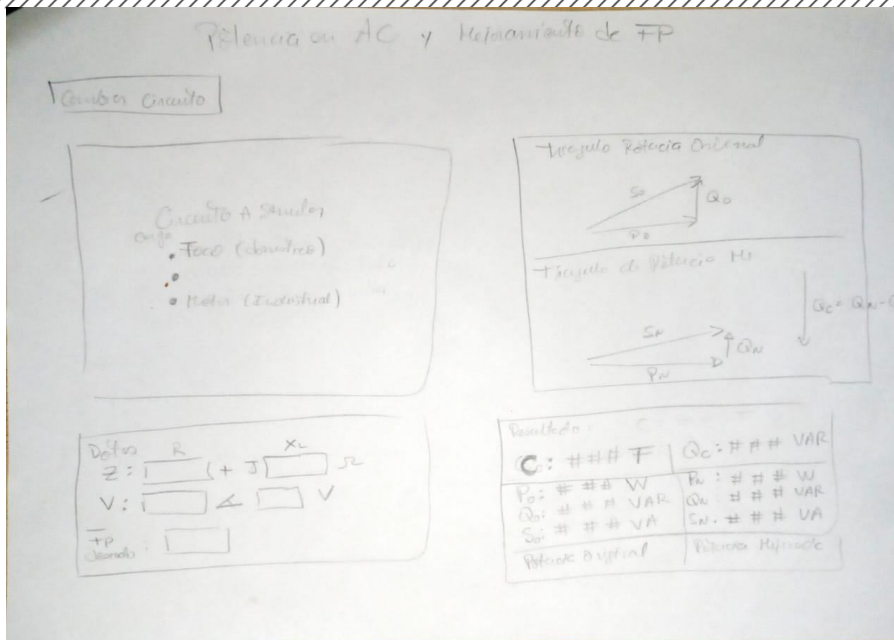 Potencia en AC y Mejoramiento de FP
Cambiar Circuito
Circuito A Simular
Foco (domestico)
Motor (Industrial)
Triangulo Potencia Original
So
Qo
Po
Triangulo de Potencia
SN
QN
PN
Datos
R
XL
Z: + J Ω
V: ∠ V
FP
deseado:
Resultados:
C: ### F
Qc: ### VAR
Po: ### W
Qo: ### VAR
So: ### VA
PN: ### W
QN: ### VAR
SN: ### VA
Potencia Original
Potencia Mejorada